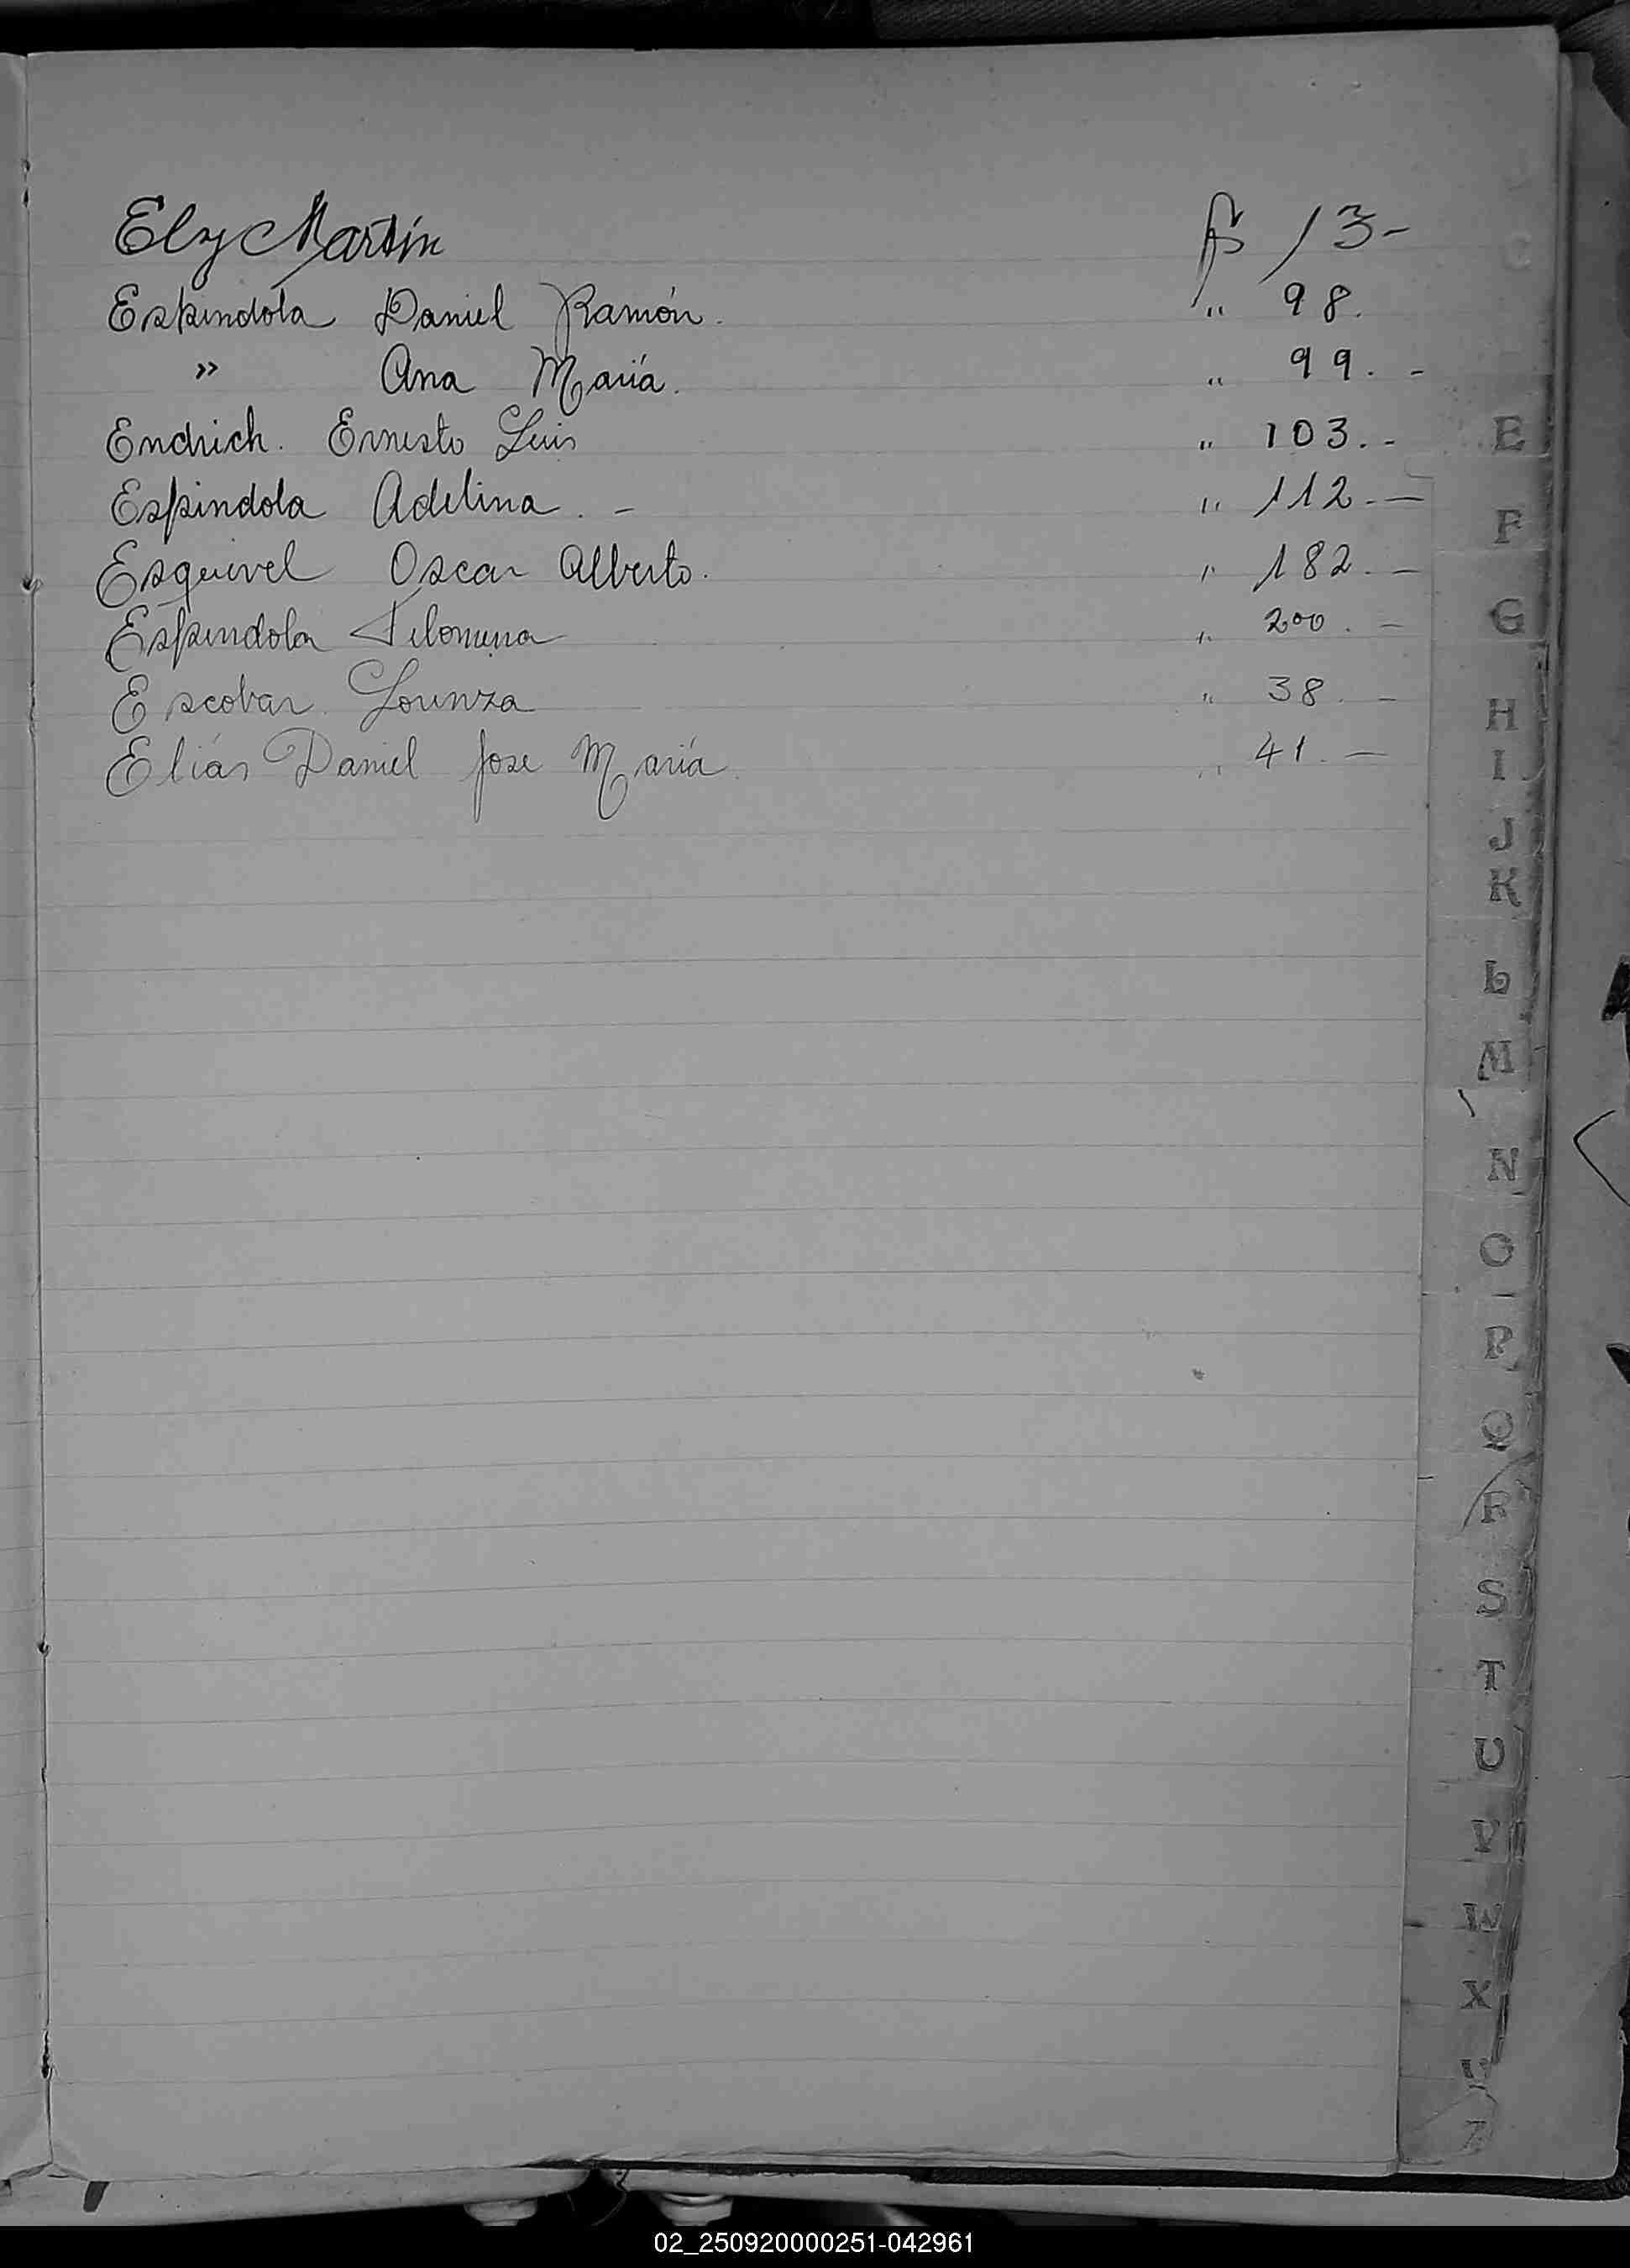 Ely Martín fs 13-
Espindola Daniel Ramón. " 98.
" Ana María. " 99. -
Endrich. Ernesto Luis " 103. -
Espindola Adelina. - " 112. -
Esquivel Oscar Alberto. " 182. -
Espindola Filomena " 200. -
Escobar. Lorenza " 38. -
Elías Daniel Jose María. " 41. -
E
F
G
H
I
J
K
L
M
N
O
P
Q
R
S
T
U
V
W
X
Z
02_250920000251-042961